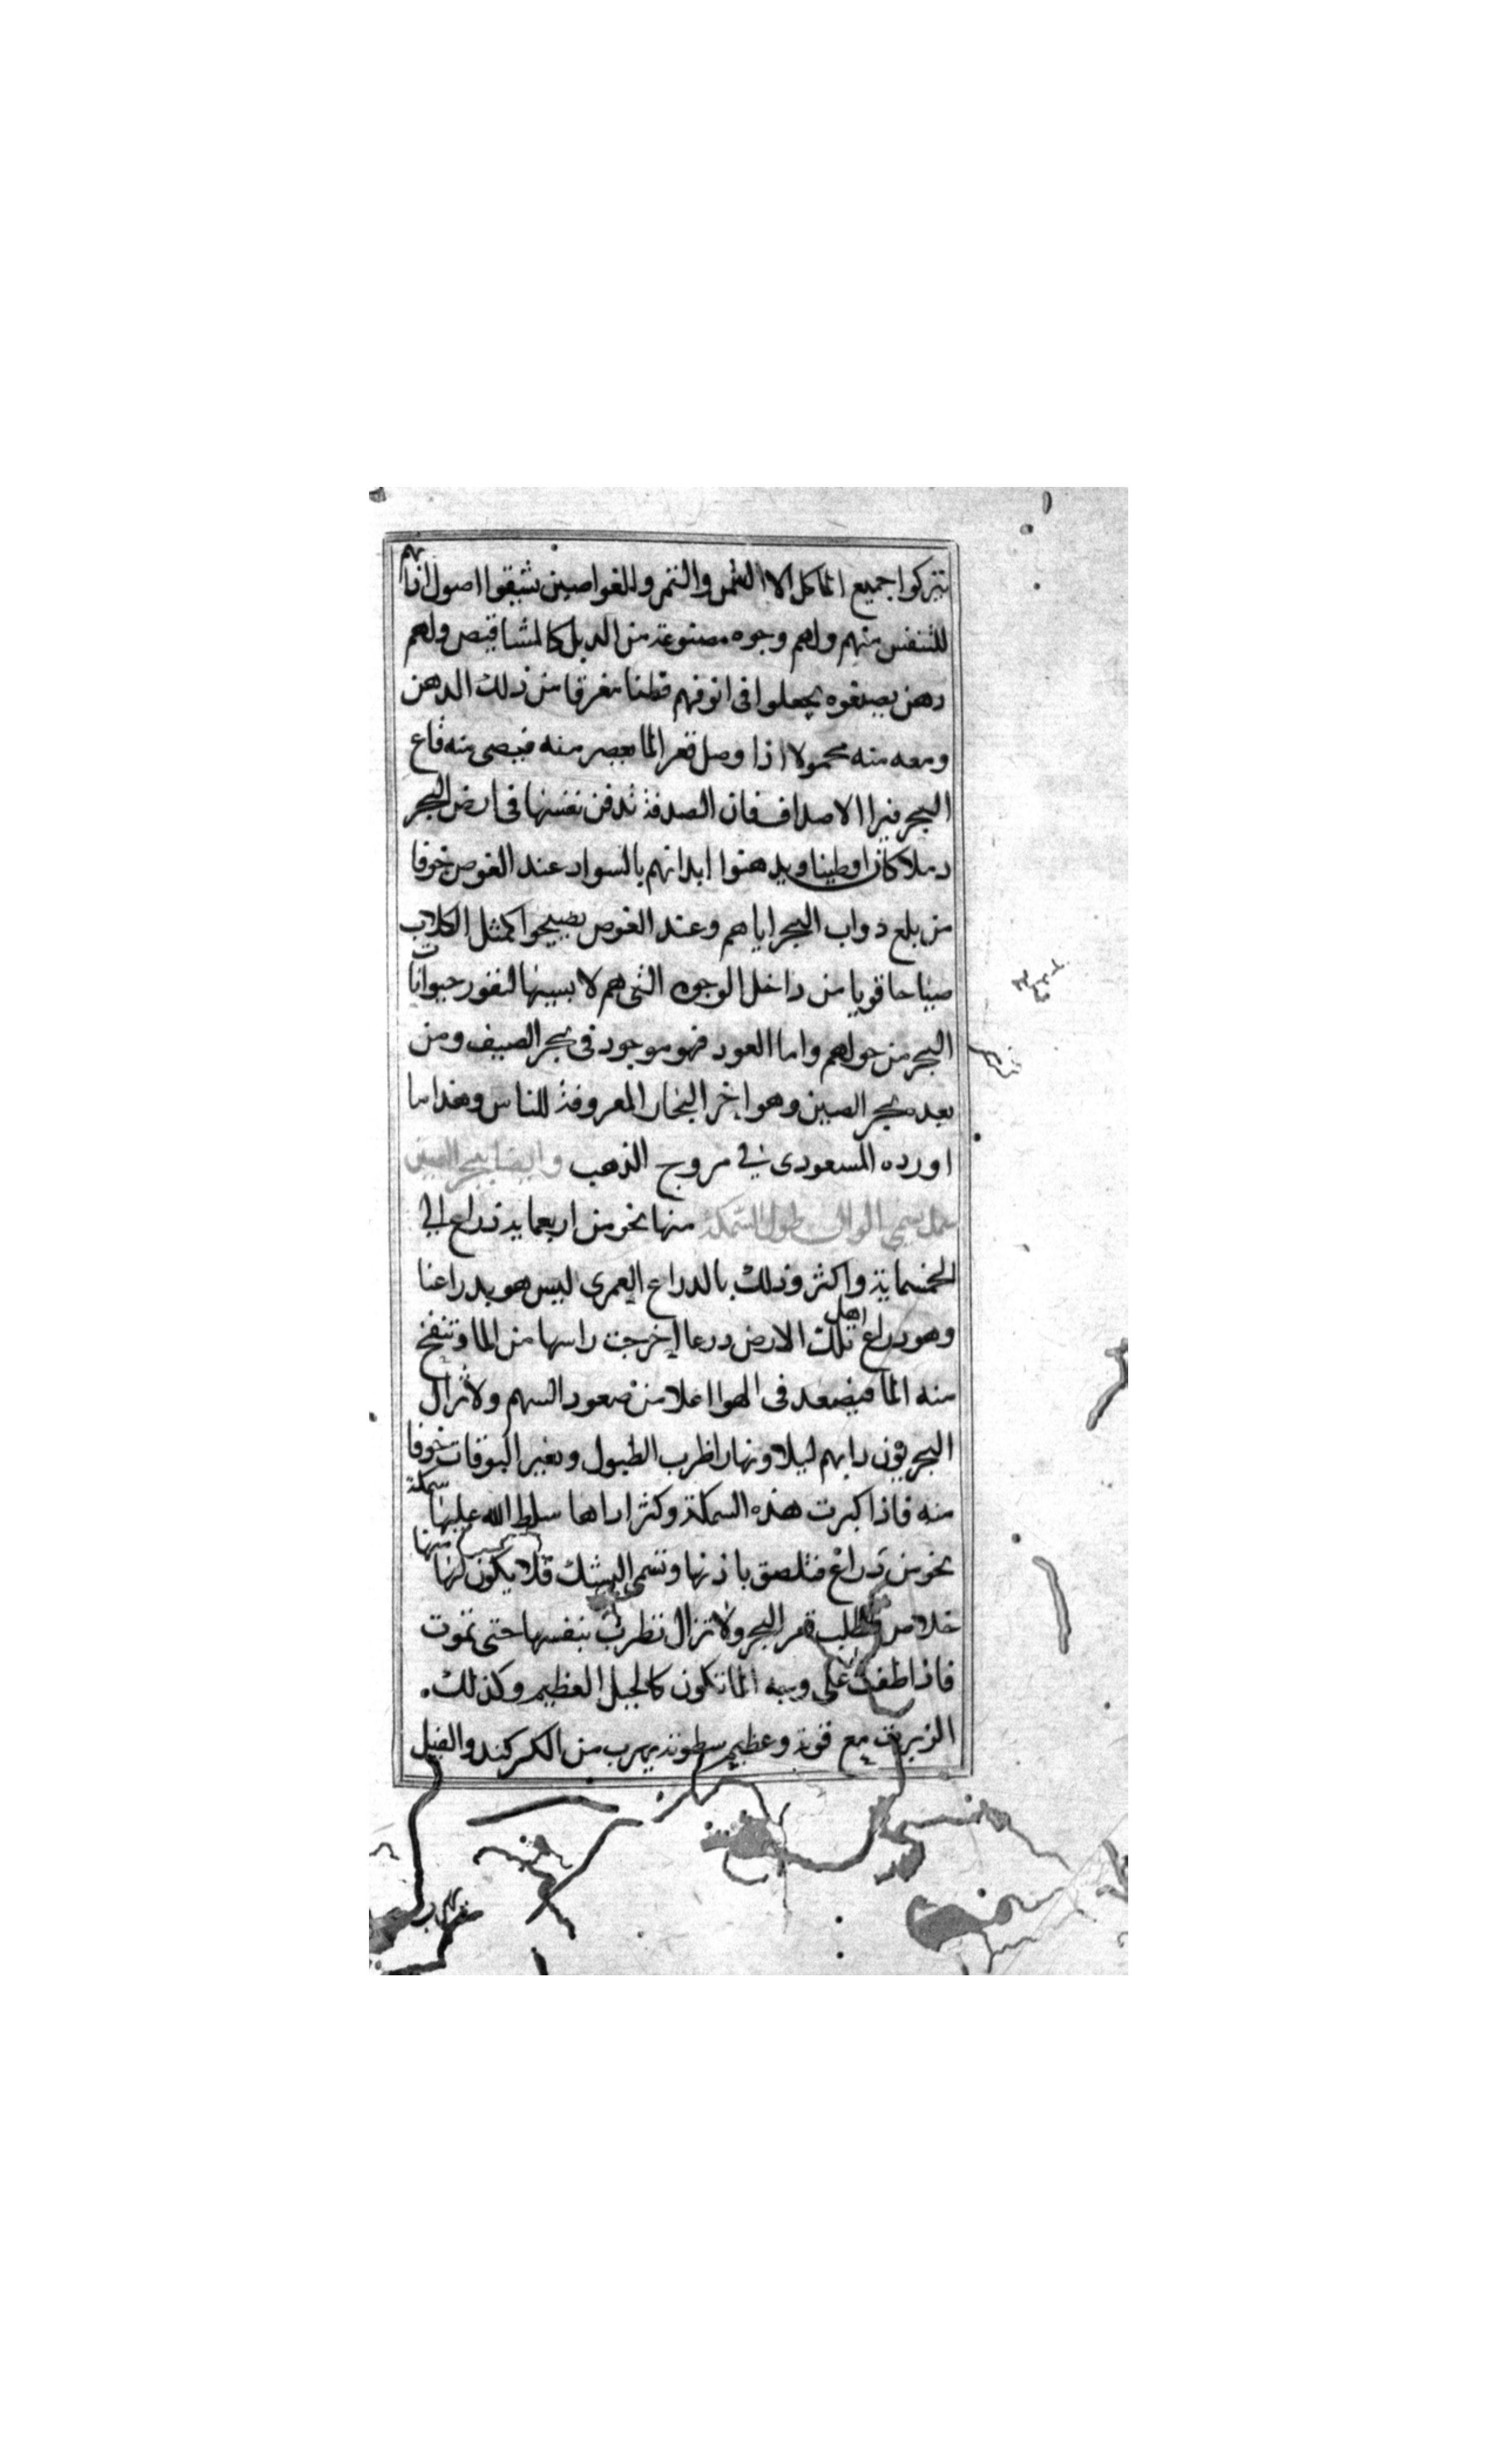 تتركوا جميع الماكل الا السمن والتمر وللغواصين تشبقوا اصول اذانهم
للتنفس منهم ولهم وجوه مصنوعة من الدبل كالمشاقيص ولهم
دهن يصنعوه يجعلوا في انوفهم قطنا مغرقا من ذلك الدهن
ومعه منه محمولا اذا وصل قعر الما يعصر منه فيضى منه قاع
البحر فيرا الاصداف فان الصدفة تدفن نفسها في ارض البحر
رملا كان اوطينا ويدهنوا ابدانهم بالسواد عند الغوص خوفا
من بلع دواب البحر اياهم وعند الغوص يصيحوا كمثل الكلاب
صياحا قويا من داخل الوجوه التي هم لابسينها لنفور حيوانات
البحر من حولهم واما العود فهو موجود في بحر الصيف ومن
بعده بحر الصين وهو اخر البحار المعروفة للناس وهذا ما
اورده المسعودى في مروج الذهب وايضا ببحر الصين
سمك يسمى الوال طول السمكة منها نحو من اربعماية ذراع الي
الخمسماية واكثر وذلك بالدراع العمرى ليس هو بدراعنا
وهو دراع اهل تلك الارض درعا اخرجت راسها من الما وتنفخ
منه الما فيصعد في الهوا اعلا من صعود السهم ولا تزال
البحريون دابهم ليلا ونهارا ظرب الطبول ونفير البوقات خوفا
منه فاذا كبرت هذه السمكة وكثر اداها سلط الله عليها سمكة
نحو من دراع فتلصق باذنها وتسمى البشك فلا يكون لها منها
خلاص فتطلب قعر البحر ولا تزال تظرب بنفسها حتى تموت
فاذا طفت على وجه الما تكون كالجبل العظيم وكذلك
الزبرق مع قوته وعظيم سطوته يهرب من الكركند والفيل